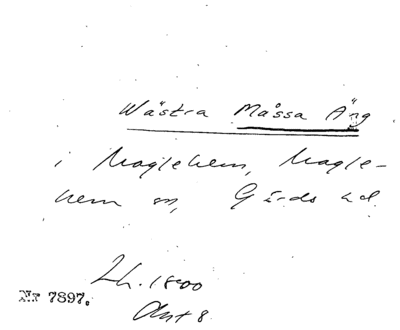 Wästra Måssa Äng
i Maglehem, Magle-
hem sn, Gärds hd
Lh. 1800
Akt 8
Nr 7897.